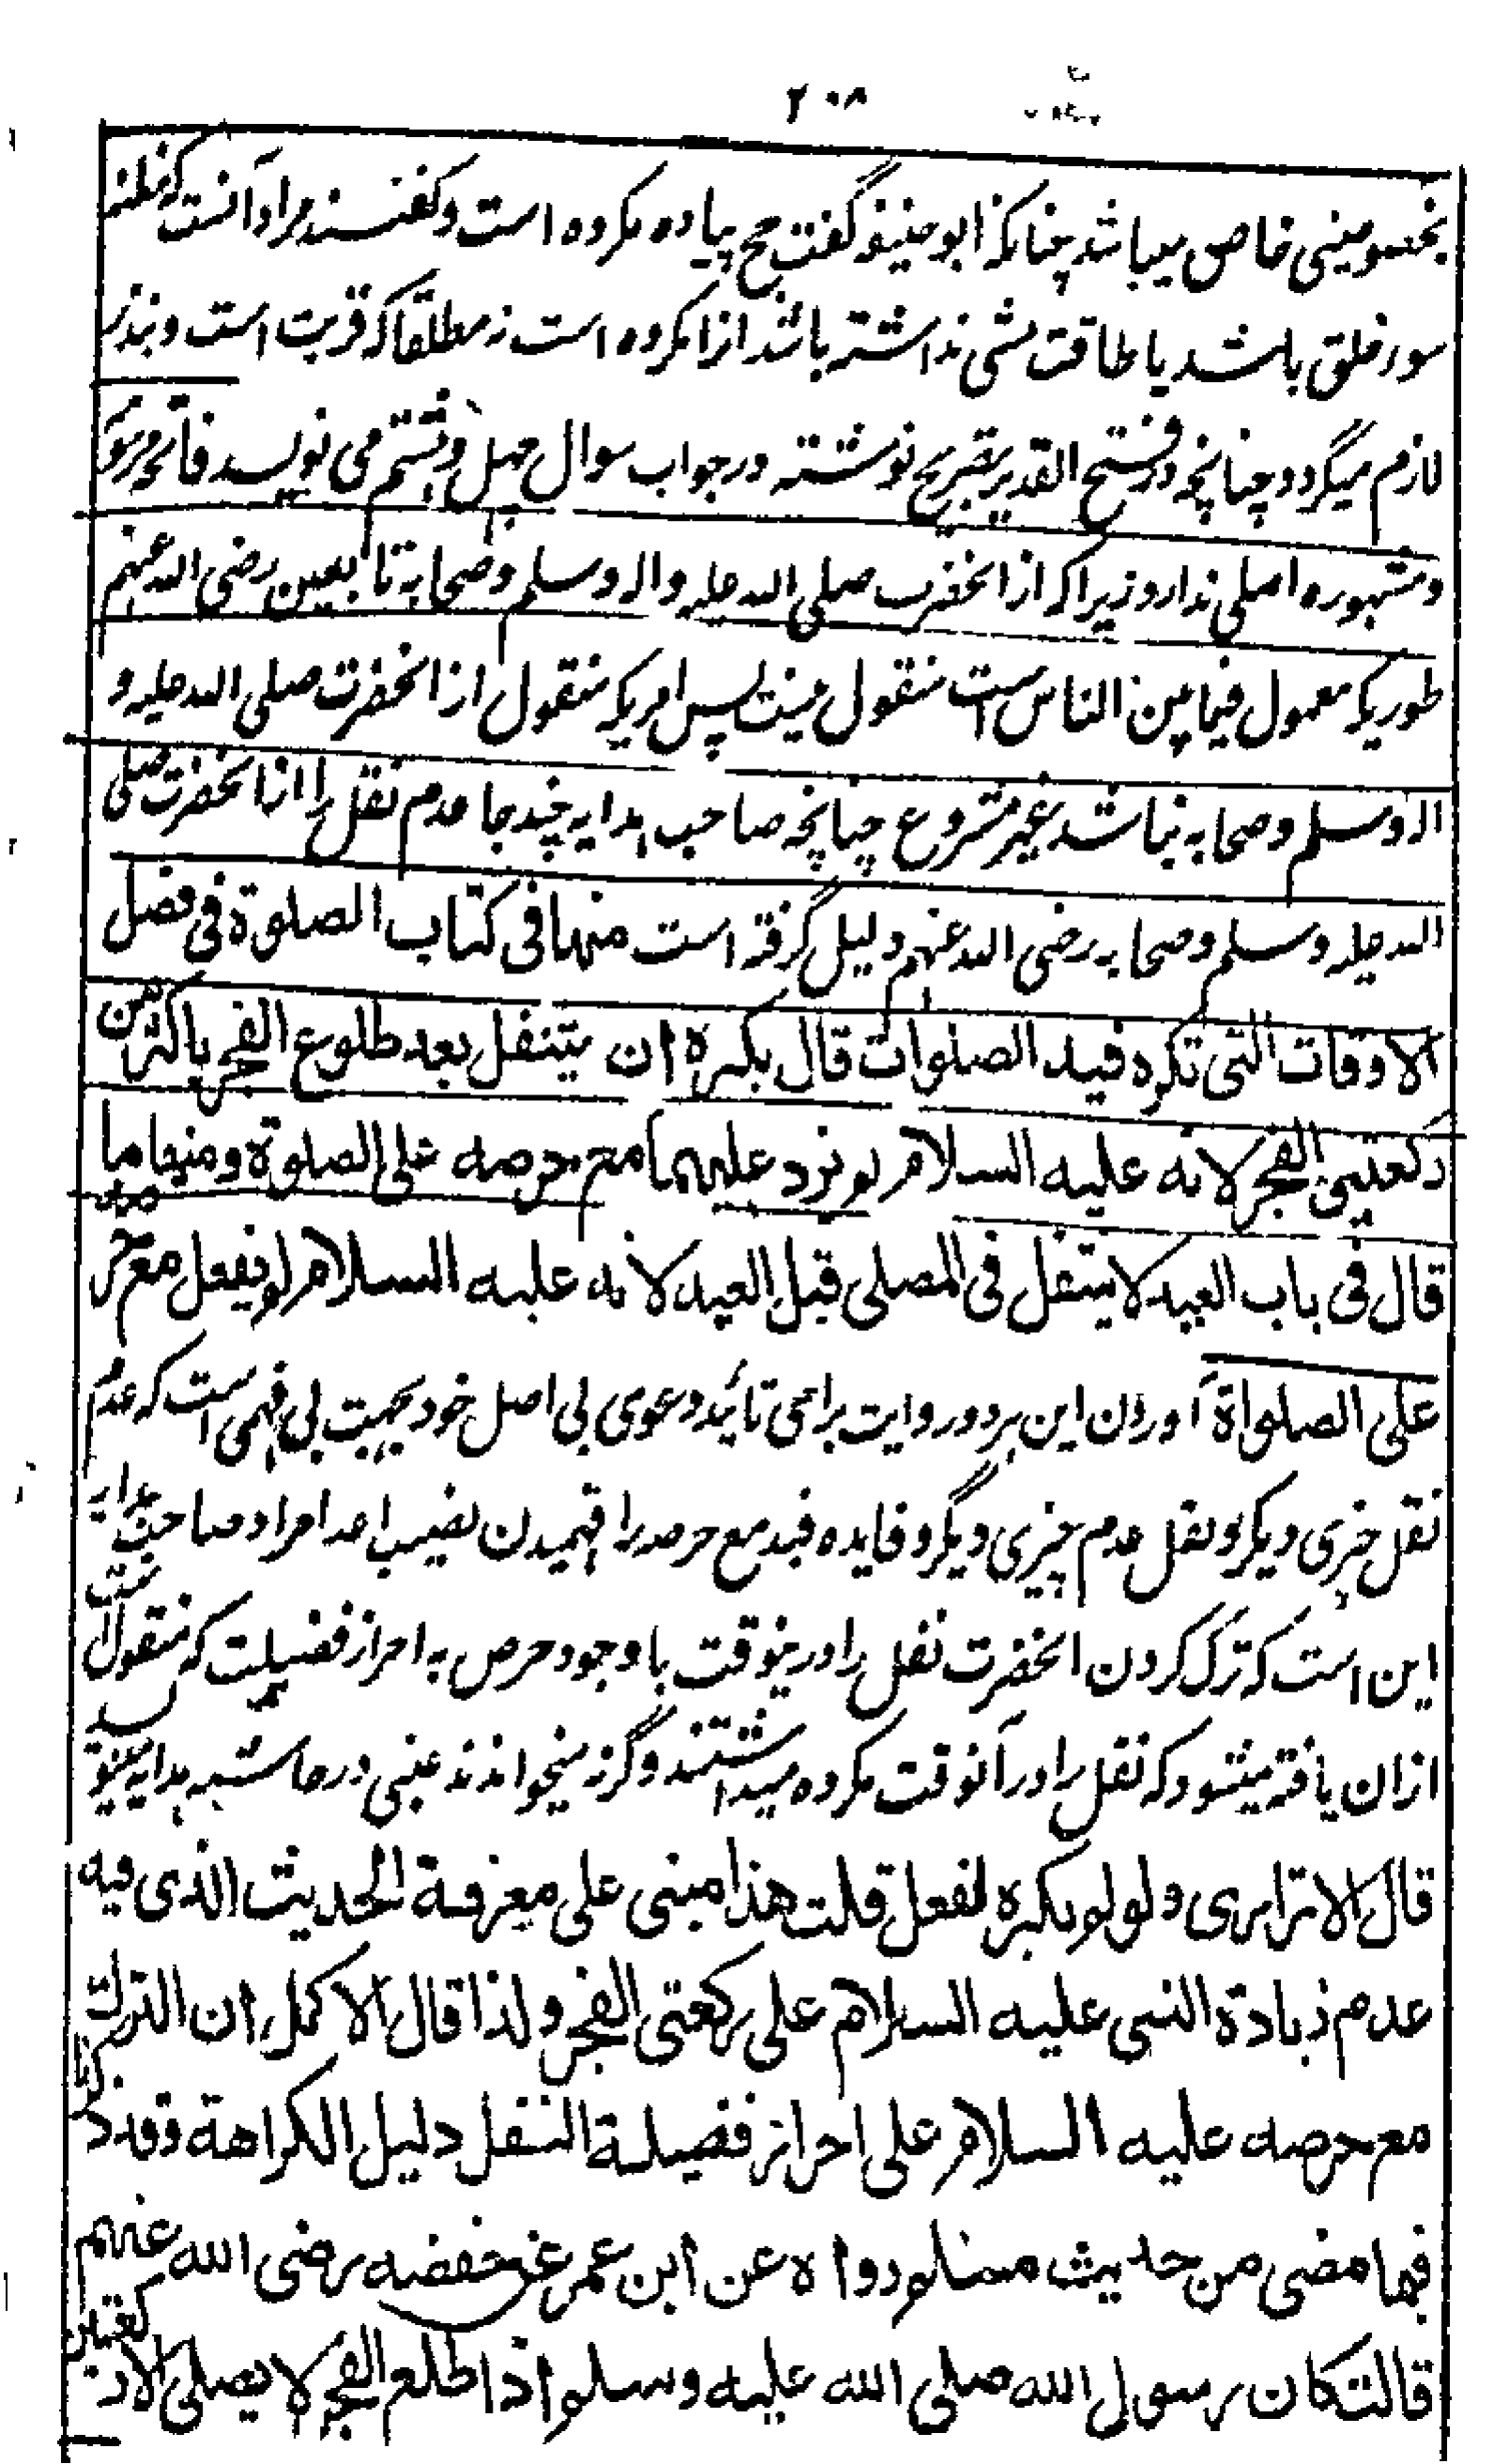 ۲۰۸
بخصوصیتی خاص میباشد چنانکه ابوحنیفه گفت حج پیاده مکروه است و گفتند مراد آنست که مظنه
سوء خلق باشد یا طاقت مشی نداشته باشد ازا مکروه است نه مطلقا که قربت است و بنذر
لازم میگردد چنانچه در فتح القدیر بتصریح نوشته در جواب سوال چهل و هشتم می نویسد فاتحه مرسومه
و مشهوره اصلی ندارد زیرا که از انحضرت صلی الله علیه واله وسلم وصحابه تا بعین رضی الله عنهم
طوریکه معمول فیما بین الناس است منقول نیست پس امریکه منقول از انحضرت صلی الله علیه و
اله وسلم وصحابه نباشد غیر مشروع چنانچه صاحب هدایه چند جا عدم نقل را از انحضرت صلی
الله علیه وسلم وصحابه رضی الله عنهم دلیل گرفته است منها فی کتاب الصلوة فی فصل
الاوقات التی تکره فیه الصلوات قال یکره ان یتنفل بعد طلوع الفجر باکثر من
رکعتین الفجر لانه علیه السلام لم یزد علیهما مع حرصه علی الصلوة ومنها ما
قال فی باب العید لا یتنفل فی المصلی قبل العید لانه علیه السلام لم یفعل مع حرصه
علی الصلواة آوردن این هر دو روایت برای تائید دعوی بی اصل خود بجهت بی فهمی است که عدم
نقل چیزی دیگر و نقل عدم چیزی دیگر و فایده قید مع حرصه را فهمیدن نصیب اعدا مراد صاحب هدایه
این است که ترک کردن انحضرت نفل را درینوقت با وجود حرص به احراز فضیلت که منقول است
ازان یافته میشود که نفل را در آنوقت مکروه میداشتند وگرنه میخواندند عینی در حاشیه هدایه مینویسد
قال الاترازی ولو لم یکره لفعل قلت هذا مبنی علی معرفة الحدیث الذی فیه
عدم زیادة النبی علیه السلام علی رکعتی الفجر ولذا قال الاکمل ان الترک
مع حرصه علیه السلام علی احراز فضیلة النفل دلیل الکراهة وقد ذکرنا
فیما مضی من حدیث مسلم رواه عن ابن عمر عن حفصه رضی الله عنهم
قالت کان رسول الله صلی الله علیه وسلم اذا طلع الفجر لا یصلی الا رکعتین